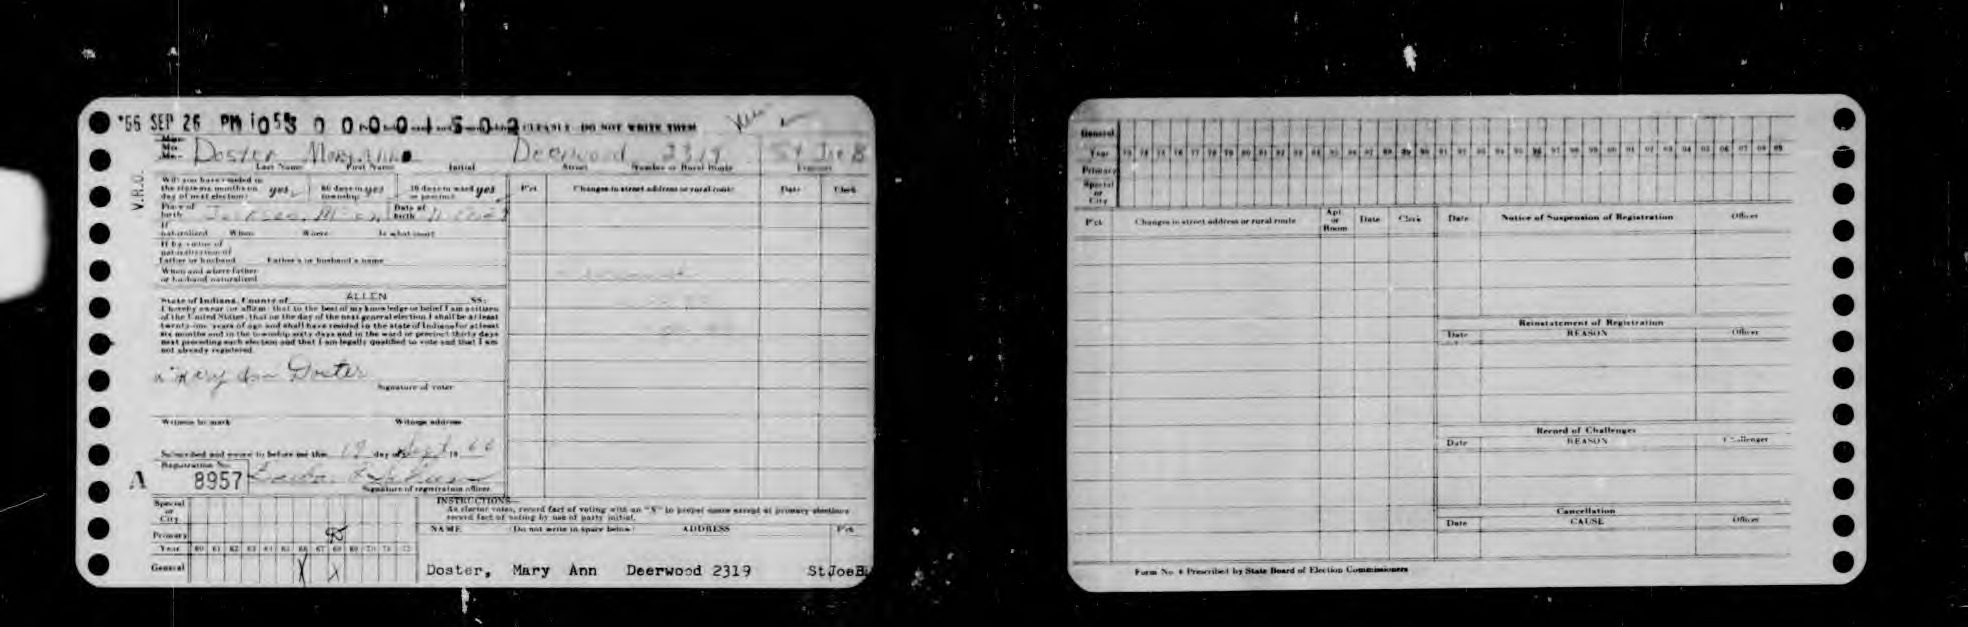 '66 SEP 26 PM 10 53 0 0 0 0 1 5 0 2 CLEARLY DO NOT WRITE THEM
Doster Mary Ann Deerwood 2319 St Joe B
Last Name First Name Initial Street Number or Rural Route Precinct
V.R.O.
Will you have resided in the state six months on day of next election? yes 60 days in township yes 30 days in ward or precinct yes
Place of birth Jackson, Mich Date of birth
If naturalized When Where In what court
If by virtue of naturalization of Father or husband Father's or husband's name
When and where father or husband naturalized
Pct. Changes in street address or rural route Date Clerk
State of Indiana, County of ALLEN SS:
I hereby swear (or affirm) that to the best of my knowledge or belief I am a citizen
of the United States, that on the day of the next general election I shall be at least
twenty-one years of age and shall have resided in the state of Indiana for at least
six months and in the township sixty days and in the ward or precinct thirty days
next preceding such election and that I am legally qualified to vote and that I am
not already registered.
x Mary Ann Doster
Signature of voter
Witness to mark Witness address
Subscribed and sworn to before me this 19 day of Sept 19 66
Registration No.
A 8957
Signature of registration officer
Special or City
Primary
Year 60 61 62 63 64 65 66 67 68 69 70 71 72
General X X
INSTRUCTIONS—
As elector votes, record fact of voting with an "X" in proper space except at primary elections
record fact of voting by use of party initial.
NAME (Do not write in space below) ADDRESS Pct.
Doster, Mary Ann Deerwood 2319 StJoeB
General
Year 73 74 75 76 77 78 79 80 81 82 83 84 85 86 87 88 89 90 91 92 93 94 95 96 97 98 99 00 01 02 03 04 05 06 07 08 09
Primary
Special or City
Pct. Changes in street address or rural route Apt. or Room Date Clerk
Date Notice of Suspension of Registration Officer
Reinstatement of Registration
Date REASON Officer
Record of Challenges
Date REASON Challenger
Cancellation
Date CAUSE Officer
Form No. 4 Prescribed by State Board of Election Commissioners